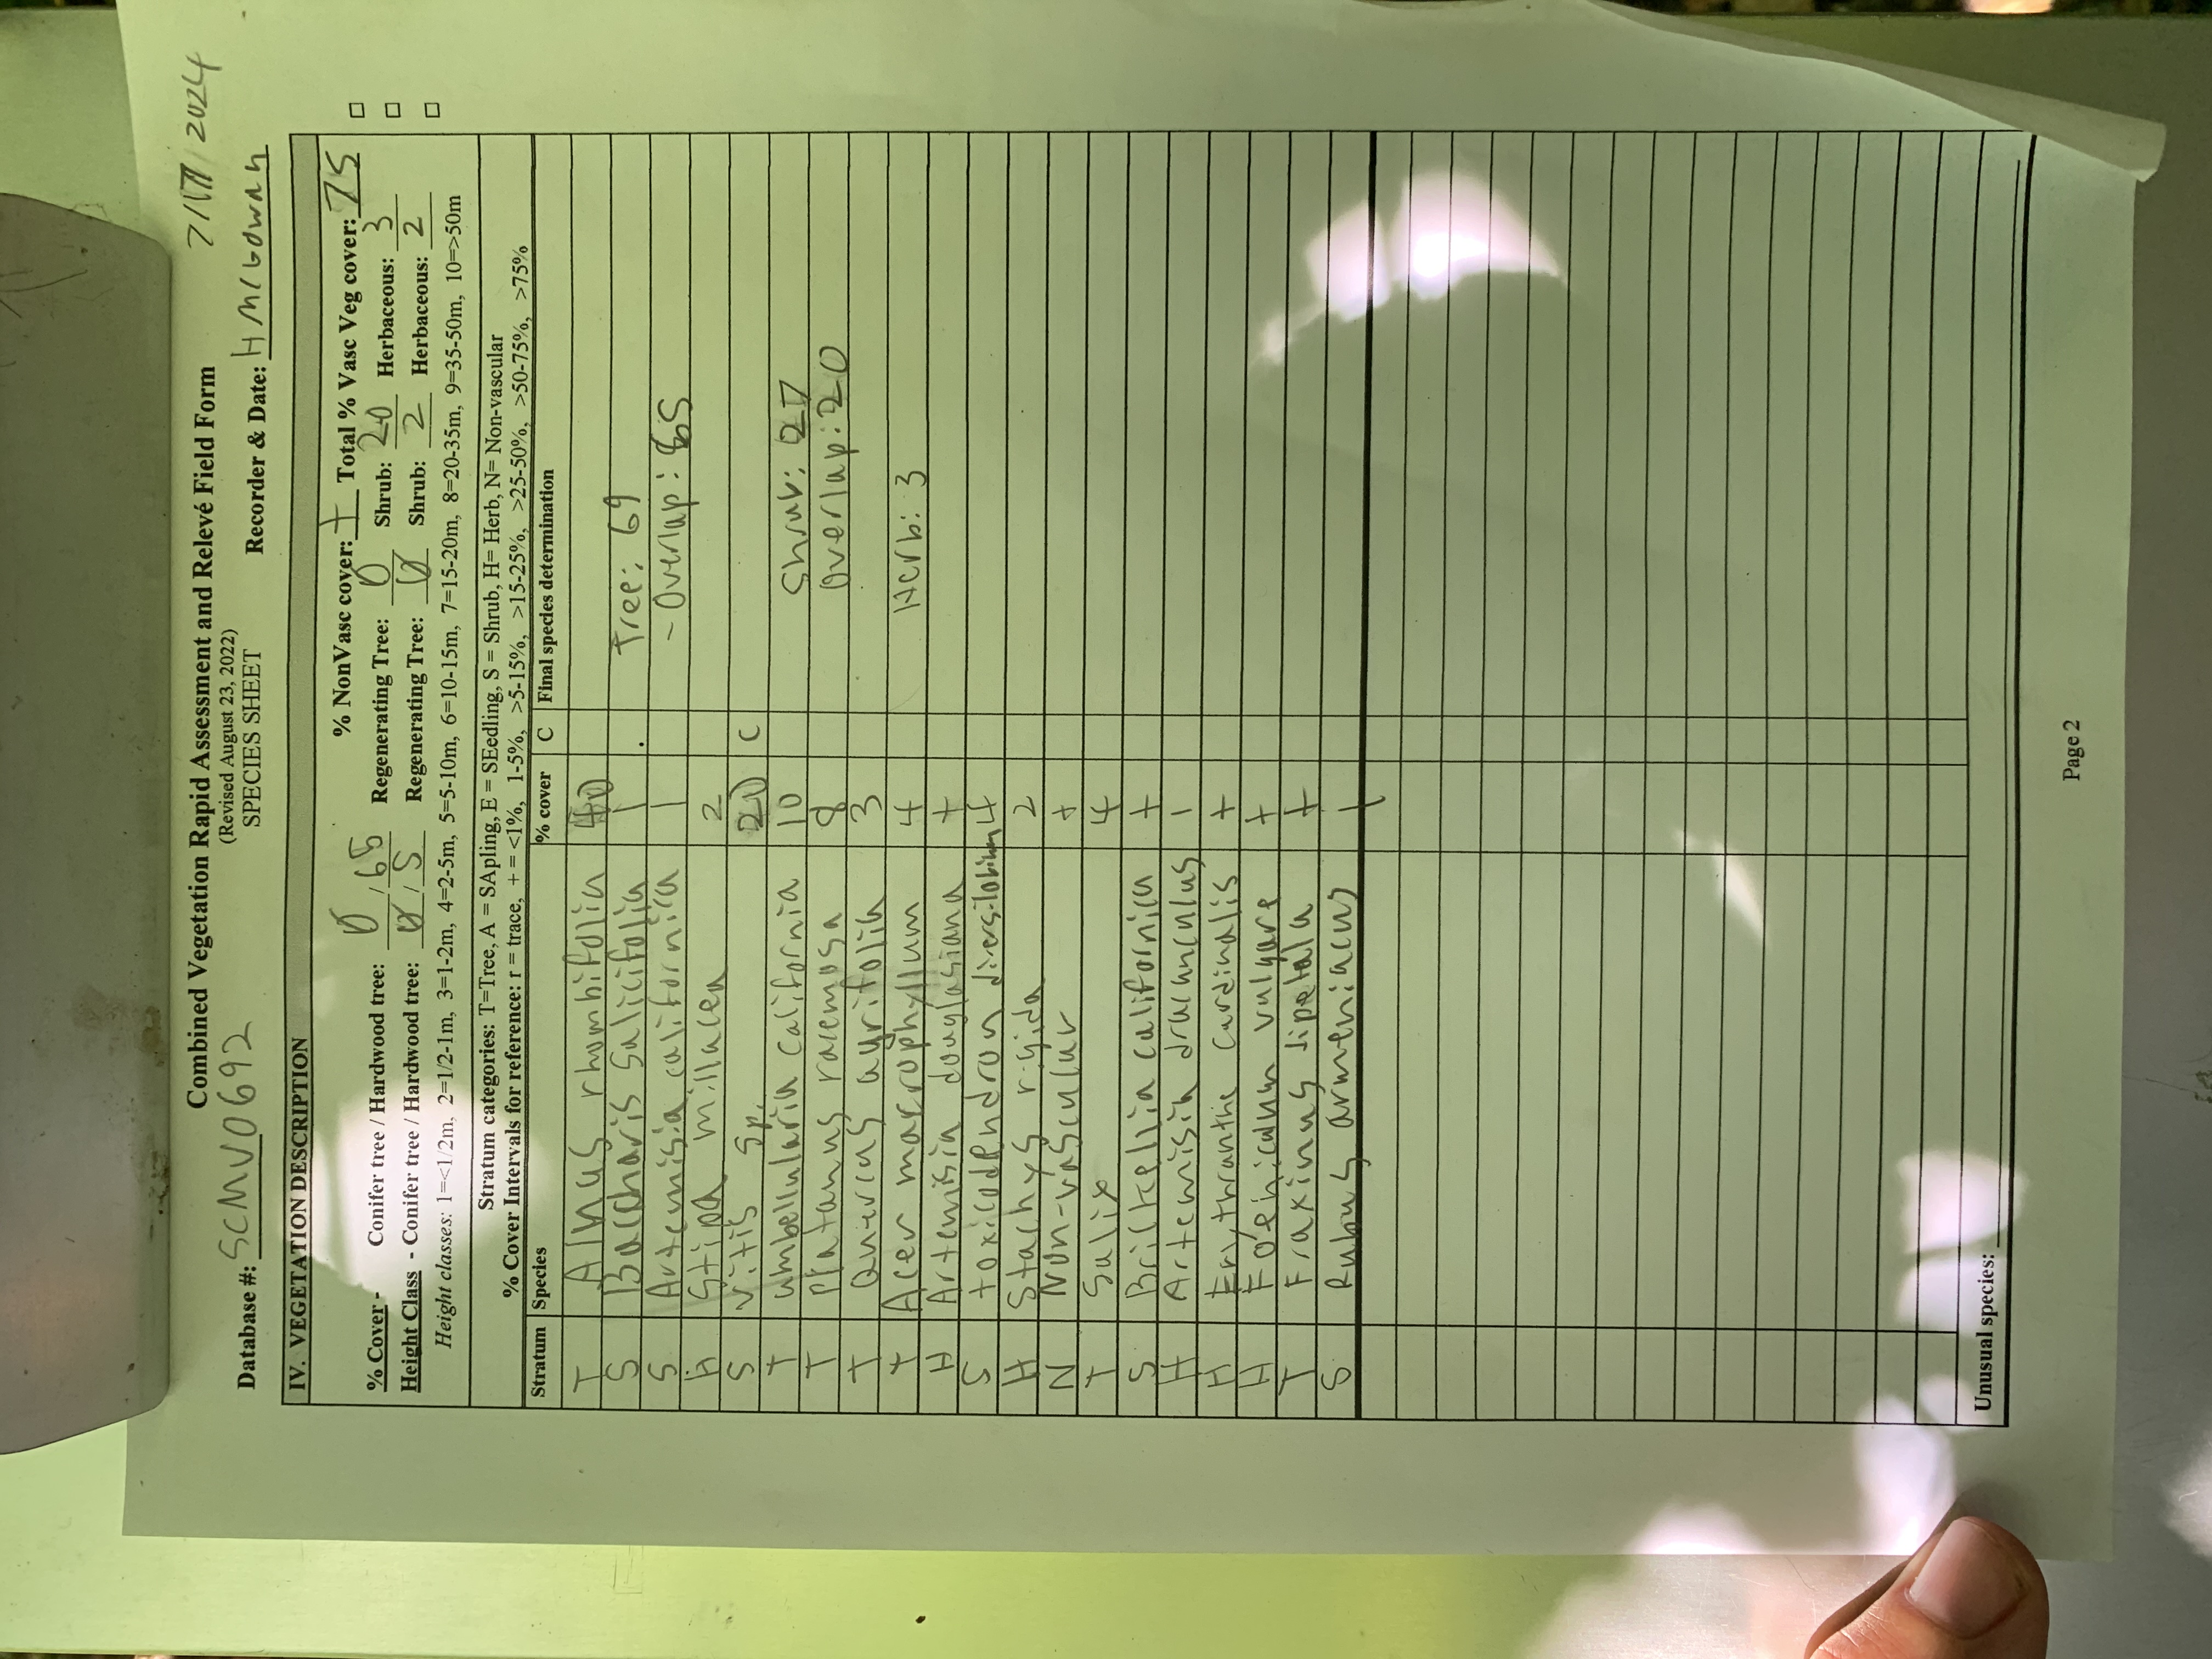 Combined Vegetation Rapid Assessment and Relevé Field Form
(Revised August 23, 2022)
SPECIES SHEET
7/17/2024
Database #: SCMV0692 Recorder & Date: H McGowan
IV. VEGETATION DESCRIPTION
% NonVasc cover: + Total % Vasc Veg cover: 75
% Cover - Conifer tree / Hardwood tree: 0 / 65 Regenerating Tree: 0 Shrub: 20 Herbaceous: 3
Height Class - Conifer tree / Hardwood tree: 0 / 5 Regenerating Tree: 0 Shrub: 2 Herbaceous: 2
Height classes: 1=<1/2m, 2=1/2-1m, 3=1-2m, 4=2-5m, 5=5-10m, 6=10-15m, 7=15-20m, 8=20-35m, 9=35-50m, 10=>50m
Stratum categories: T=Tree, A = SApling, E = SEedling, S = Shrub, H= Herb, N= Non-vascular
% Cover Intervals for reference: r = trace, + = <1%, 1-5%, >5-15%, >15-25%, >25-50%, >50-75%, >75%
Stratum Species % cover C Final species determination
T Alnus rhombifolia 40
S Baccharis salicifolia 1 Tree: 69
S Artemisia californica 1 - Overlap: 65
H Stipa millacea 2
S vitis sp. 20 C
T umbellularia california 10 Shrub: 27
T Platanus racemosa 8 Overlap: 20
T Quercus agrifolia 3
T Acer macrophyllum 4 Herb: 3
H Artemisia douglasiana +
S toxicodendron diversilobium 4
H Stachys rigida 2
N Non-vascular +
T Salix 4
S Brickellia californica +
H Artemisia dracunculus 1
H Erythranthe cardinalis +
H Foeniculum vulgare +
T Fraxinus dipetala +
S Rubus armeniacus 1
Unusual species:
Page 2